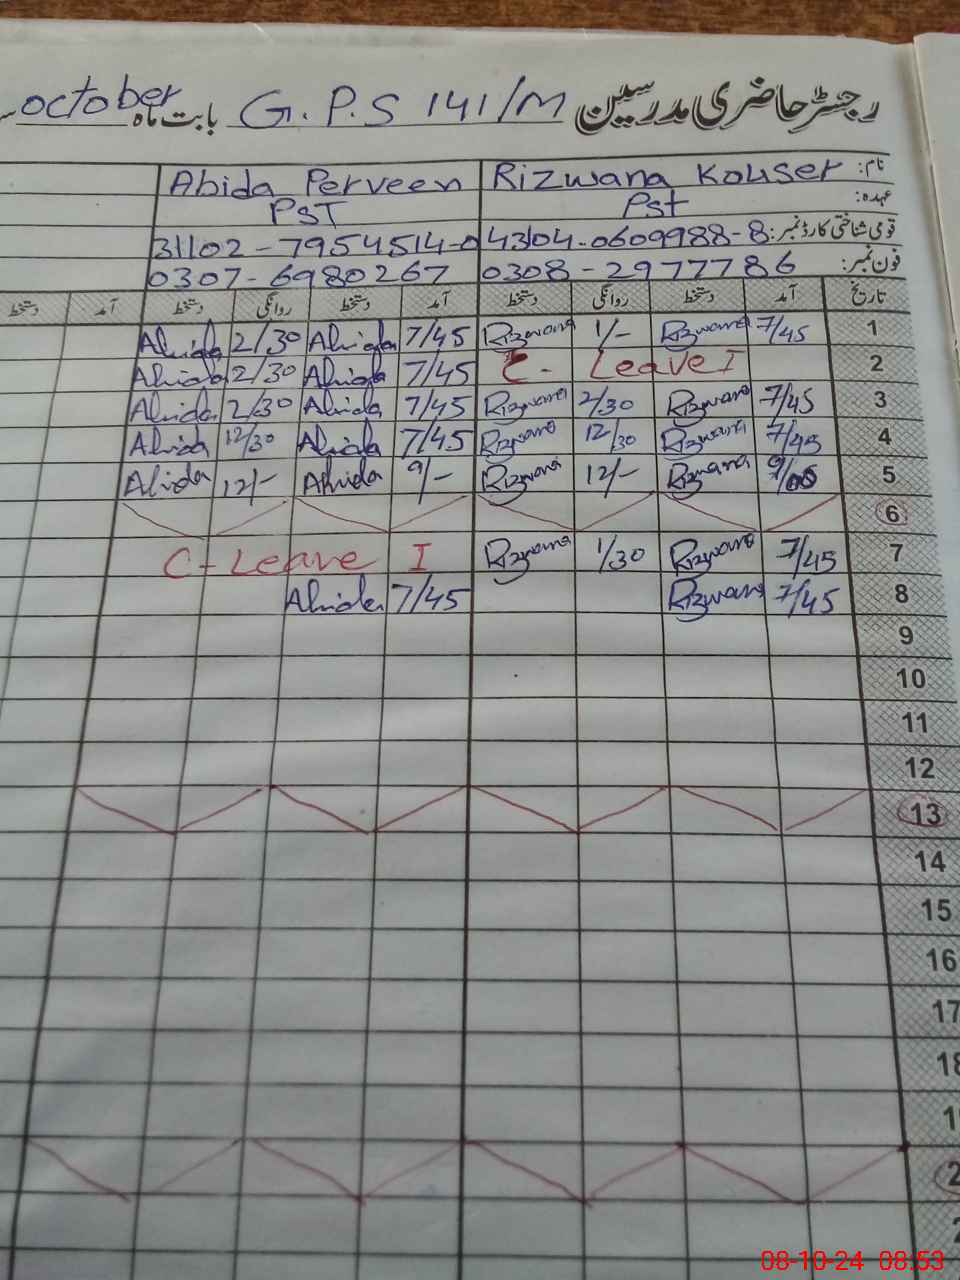 رجسٹر حاضری مدرسین G.P.S 141/M بابت ماہ october
نام: Rizwana Kouser Abida Perveen
عہدہ: Pst PST
قومی شناختی کارڈ نمبر: 43104-0609988-8 31102-7954514-0
فون نمبر: 0308-2977786 0307-6980267
تاریخ آمد دستخط روانگی دستخط آمد دستخط روانگی دستخط آمد دستخط
1 7/45 Rizwana 1/- Rizwana 7/45 Abida 2/30 Abida
2 C- Leave I 7/45 Abida 2/30 Abida
3 7/45 Rizwana 2/30 Rizwana 7/45 Abida 2/30 Abida
4 7/45 Rizwana 12/30 Rizwana 7/45 Abida 12/30 Abida
5 Rizwana 12/- Rizwana 9/- Abida 12/- Abida
6
7 7/45 Rizwana 1/30 Rizwana C- Leave I
8 7/45 Rizwana 7/45 Abida
9
10
11
12
13
14
15
16
17
18
08-10-24 08:53